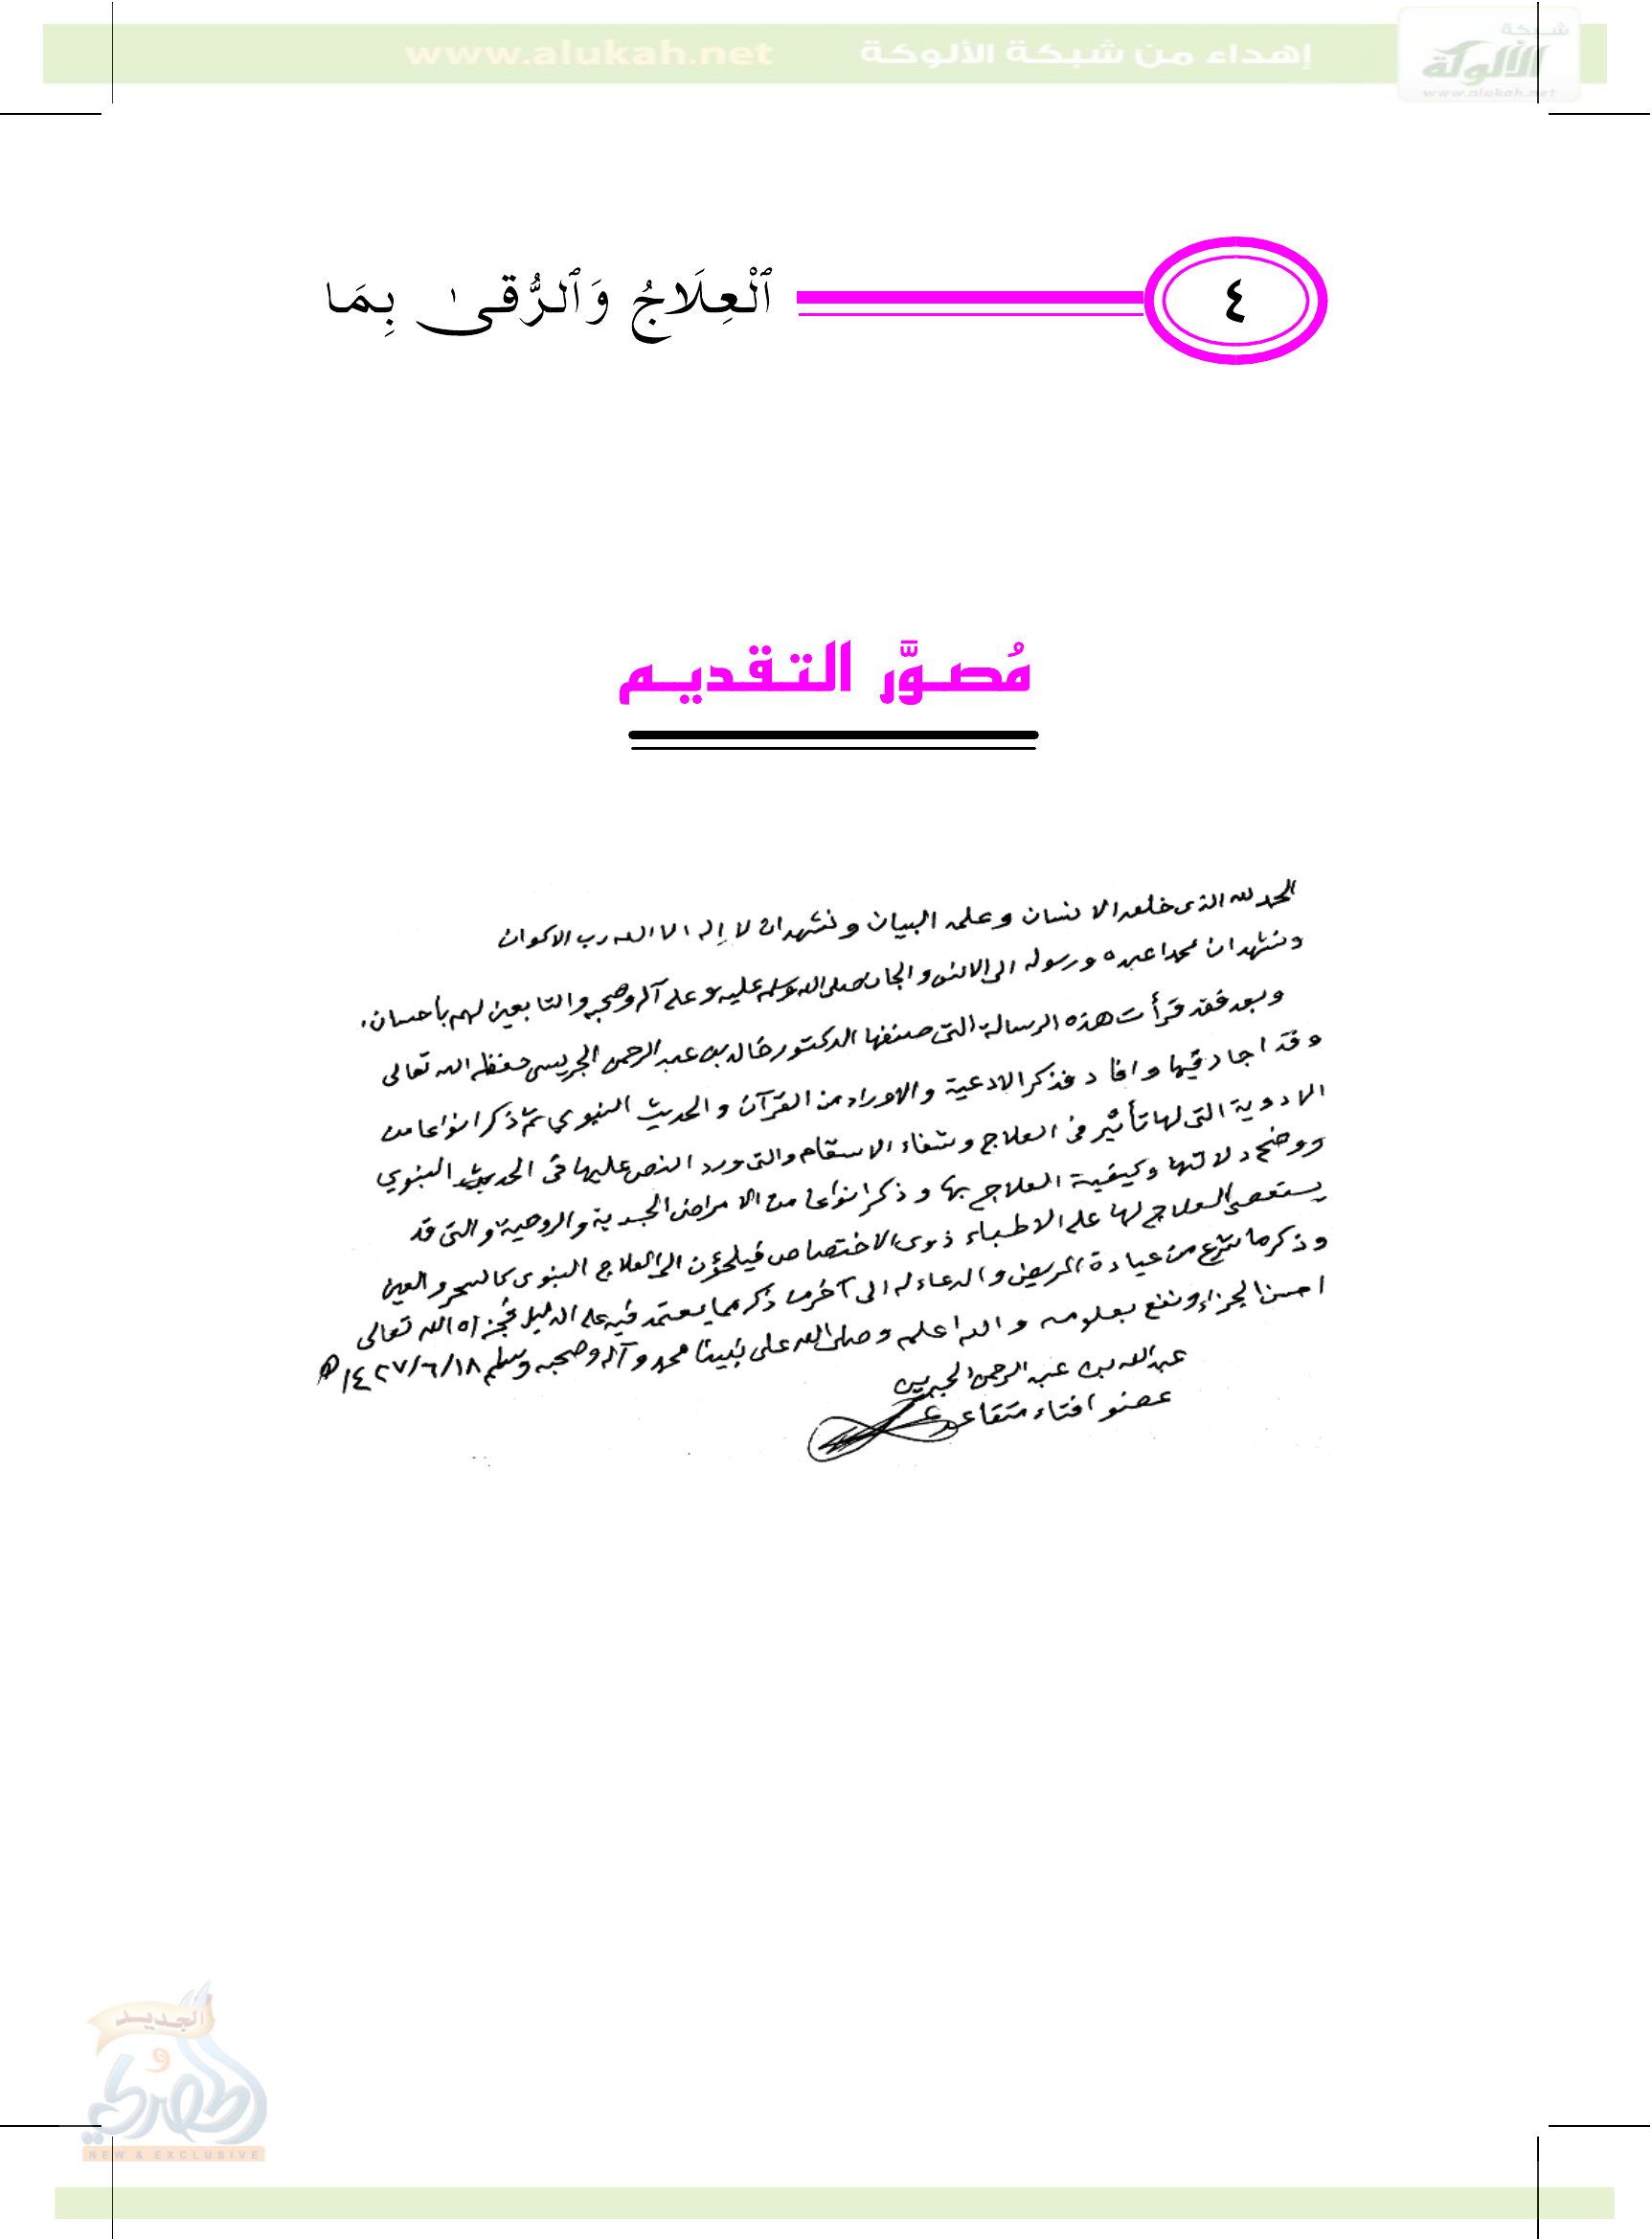 إهداء من شبكة الألوكة www.alukah.net
شبكة
الألوكة
www.alukah.net
٤ ٱلْعِلَاجُ وَٱلرُّقىٰ بِمَا
مُصوَّر التقديم
الحمد لله الذى خلق الانسان وعلمه البيان ونشهد ان لا إله الا الله رب الاكوان
ونشهد ان محمدا عبده ورسوله الى الانس والجان صلى الله وسلم عليه وعلى آله وصحبه والتابعين لهم باحسان.
وبعد فقد قرأت هذه الرسالة التى صنفها الدكتور خالد بن عبد الرحمن الجريسى حفظه الله تعالى
وقد اجاد فيها وافاد فذكر الادعية والاوراد من القرآن والحديث النبوي ثم ذكر انواعا من
الادوية التى لها تأثير فى العلاج وشفاء الاسقام والتى ورد النص عليها فى الحديث النبوي
ووضح دلالتها وكيفية العلاج بها وذكر انواعا من الامراض الجسدية والروحية والتى قد
يستعصى العلاج لها على الاطباء ذوى الاختصاص فيلجؤن الى العلاج النبوى كالسحر والعين
وذكر ما شرع من عيادة المريض والدعاء له الى آخر ما ذكر مما يعتمد فيه على الدليل فجزاه الله تعالى
احسن الجزاء ونفع بعلومه والله اعلم وصلى الله على نبينا محمد وآله وصحبه وسلم ١٤٢٧/٦/١٨ه
عبد الله بن عبد الرحمن الجبرين
عضو افتاء متقاعد
الجديد
و
الحصري
NEW & EXCLUSIVE